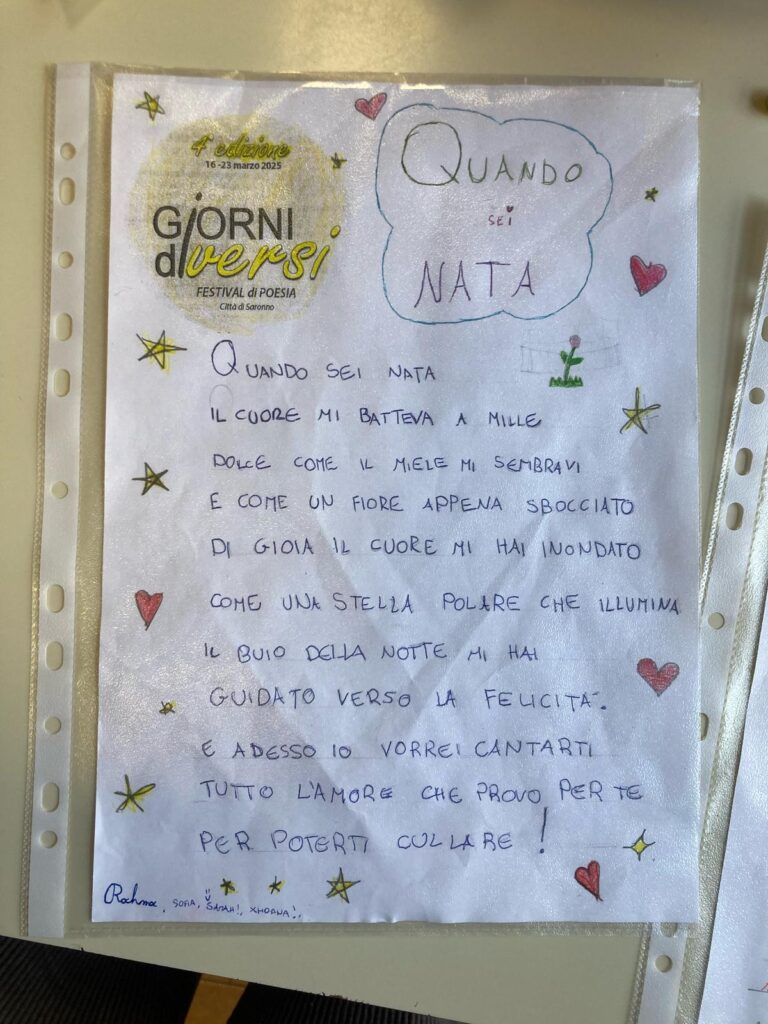 4ª edizione
16-23 marzo 2025
GiORNI
diversi
FESTIVAL di POESIA
Città di Saronno
QUANDO
SEI
NATA
QUANDO SEI NATA
IL CUORE MI BATTEVA A MILLE
DOLCE COME IL MIELE MI SEMBRAVI
E COME UN FIORE APPENA SBOCCIATO
DI GIOIA IL CUORE MI HAI INONDATO
COME UNA STELLA POLARE CHE ILLUMINA
IL BUIO DELLA NOTTE MI HAI
GUIDATO VERSO LA FELICITA'.
E ADESSO IO VORREI CANTARTI
TUTTO L'AMORE CHE PROVO PER TE
PER POTERTI CULLARE!
Rachma, SOFIA, SARAH!, XHOANA!